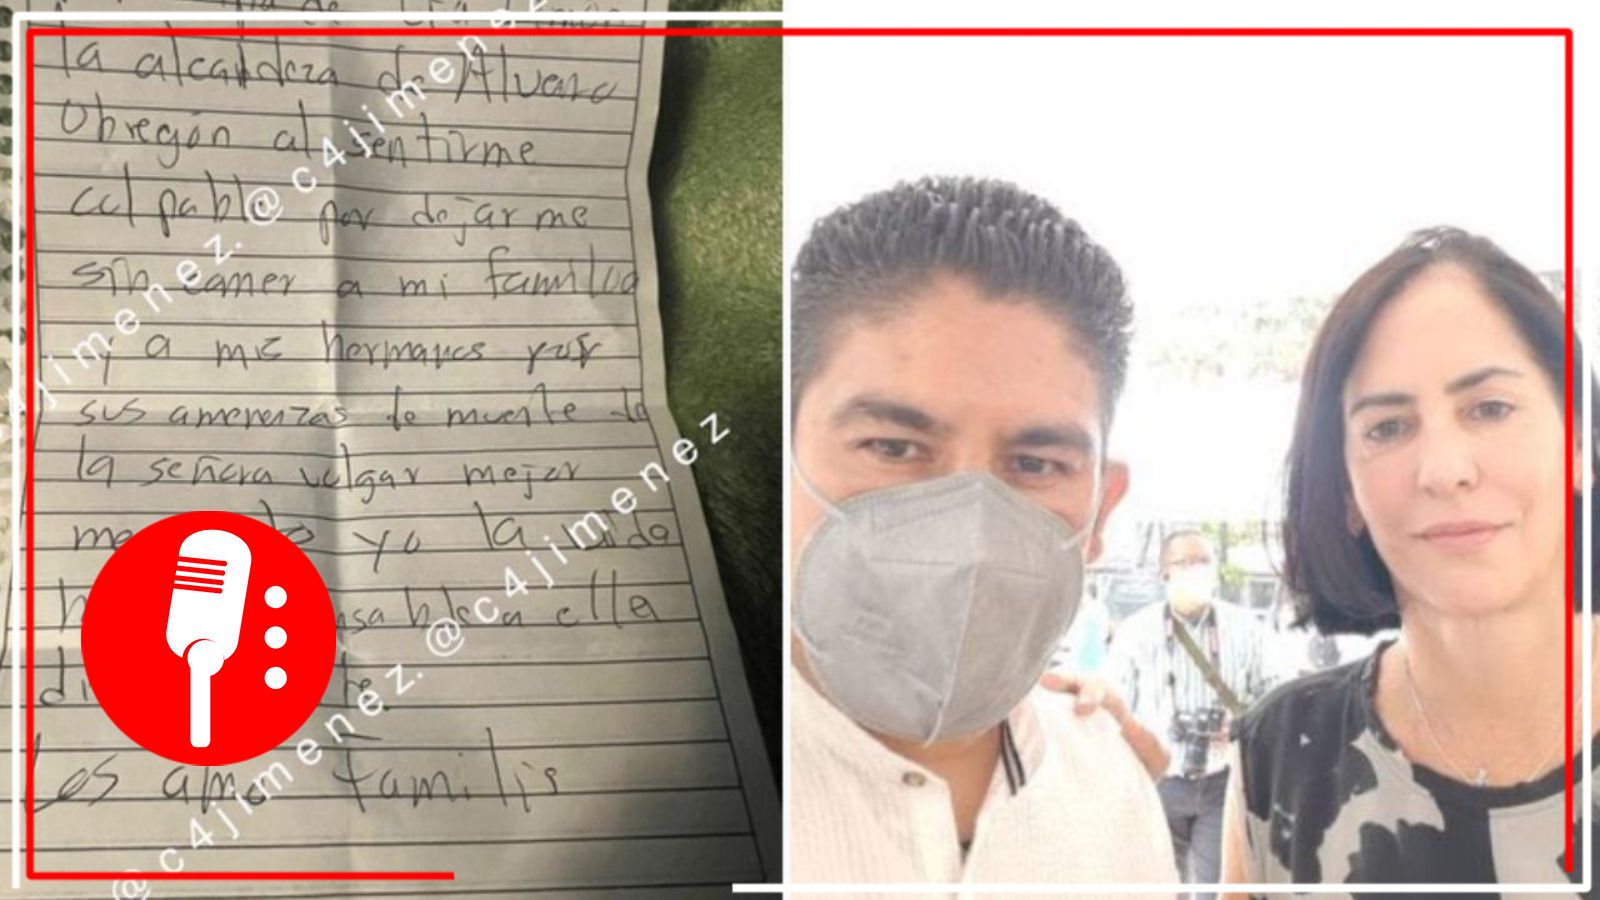 la alcaldeza de Alvaro
Obregón al sentirme
culpable por dejarme
sin comer a mi familia
y a mis hermanos por
sus amenenzas de muerte de
la señora vulgar mejor
yo la vida
ella
Les amo familis
@c4jimenez. @c4jimenez
@c4jimenez. @c4jimenez